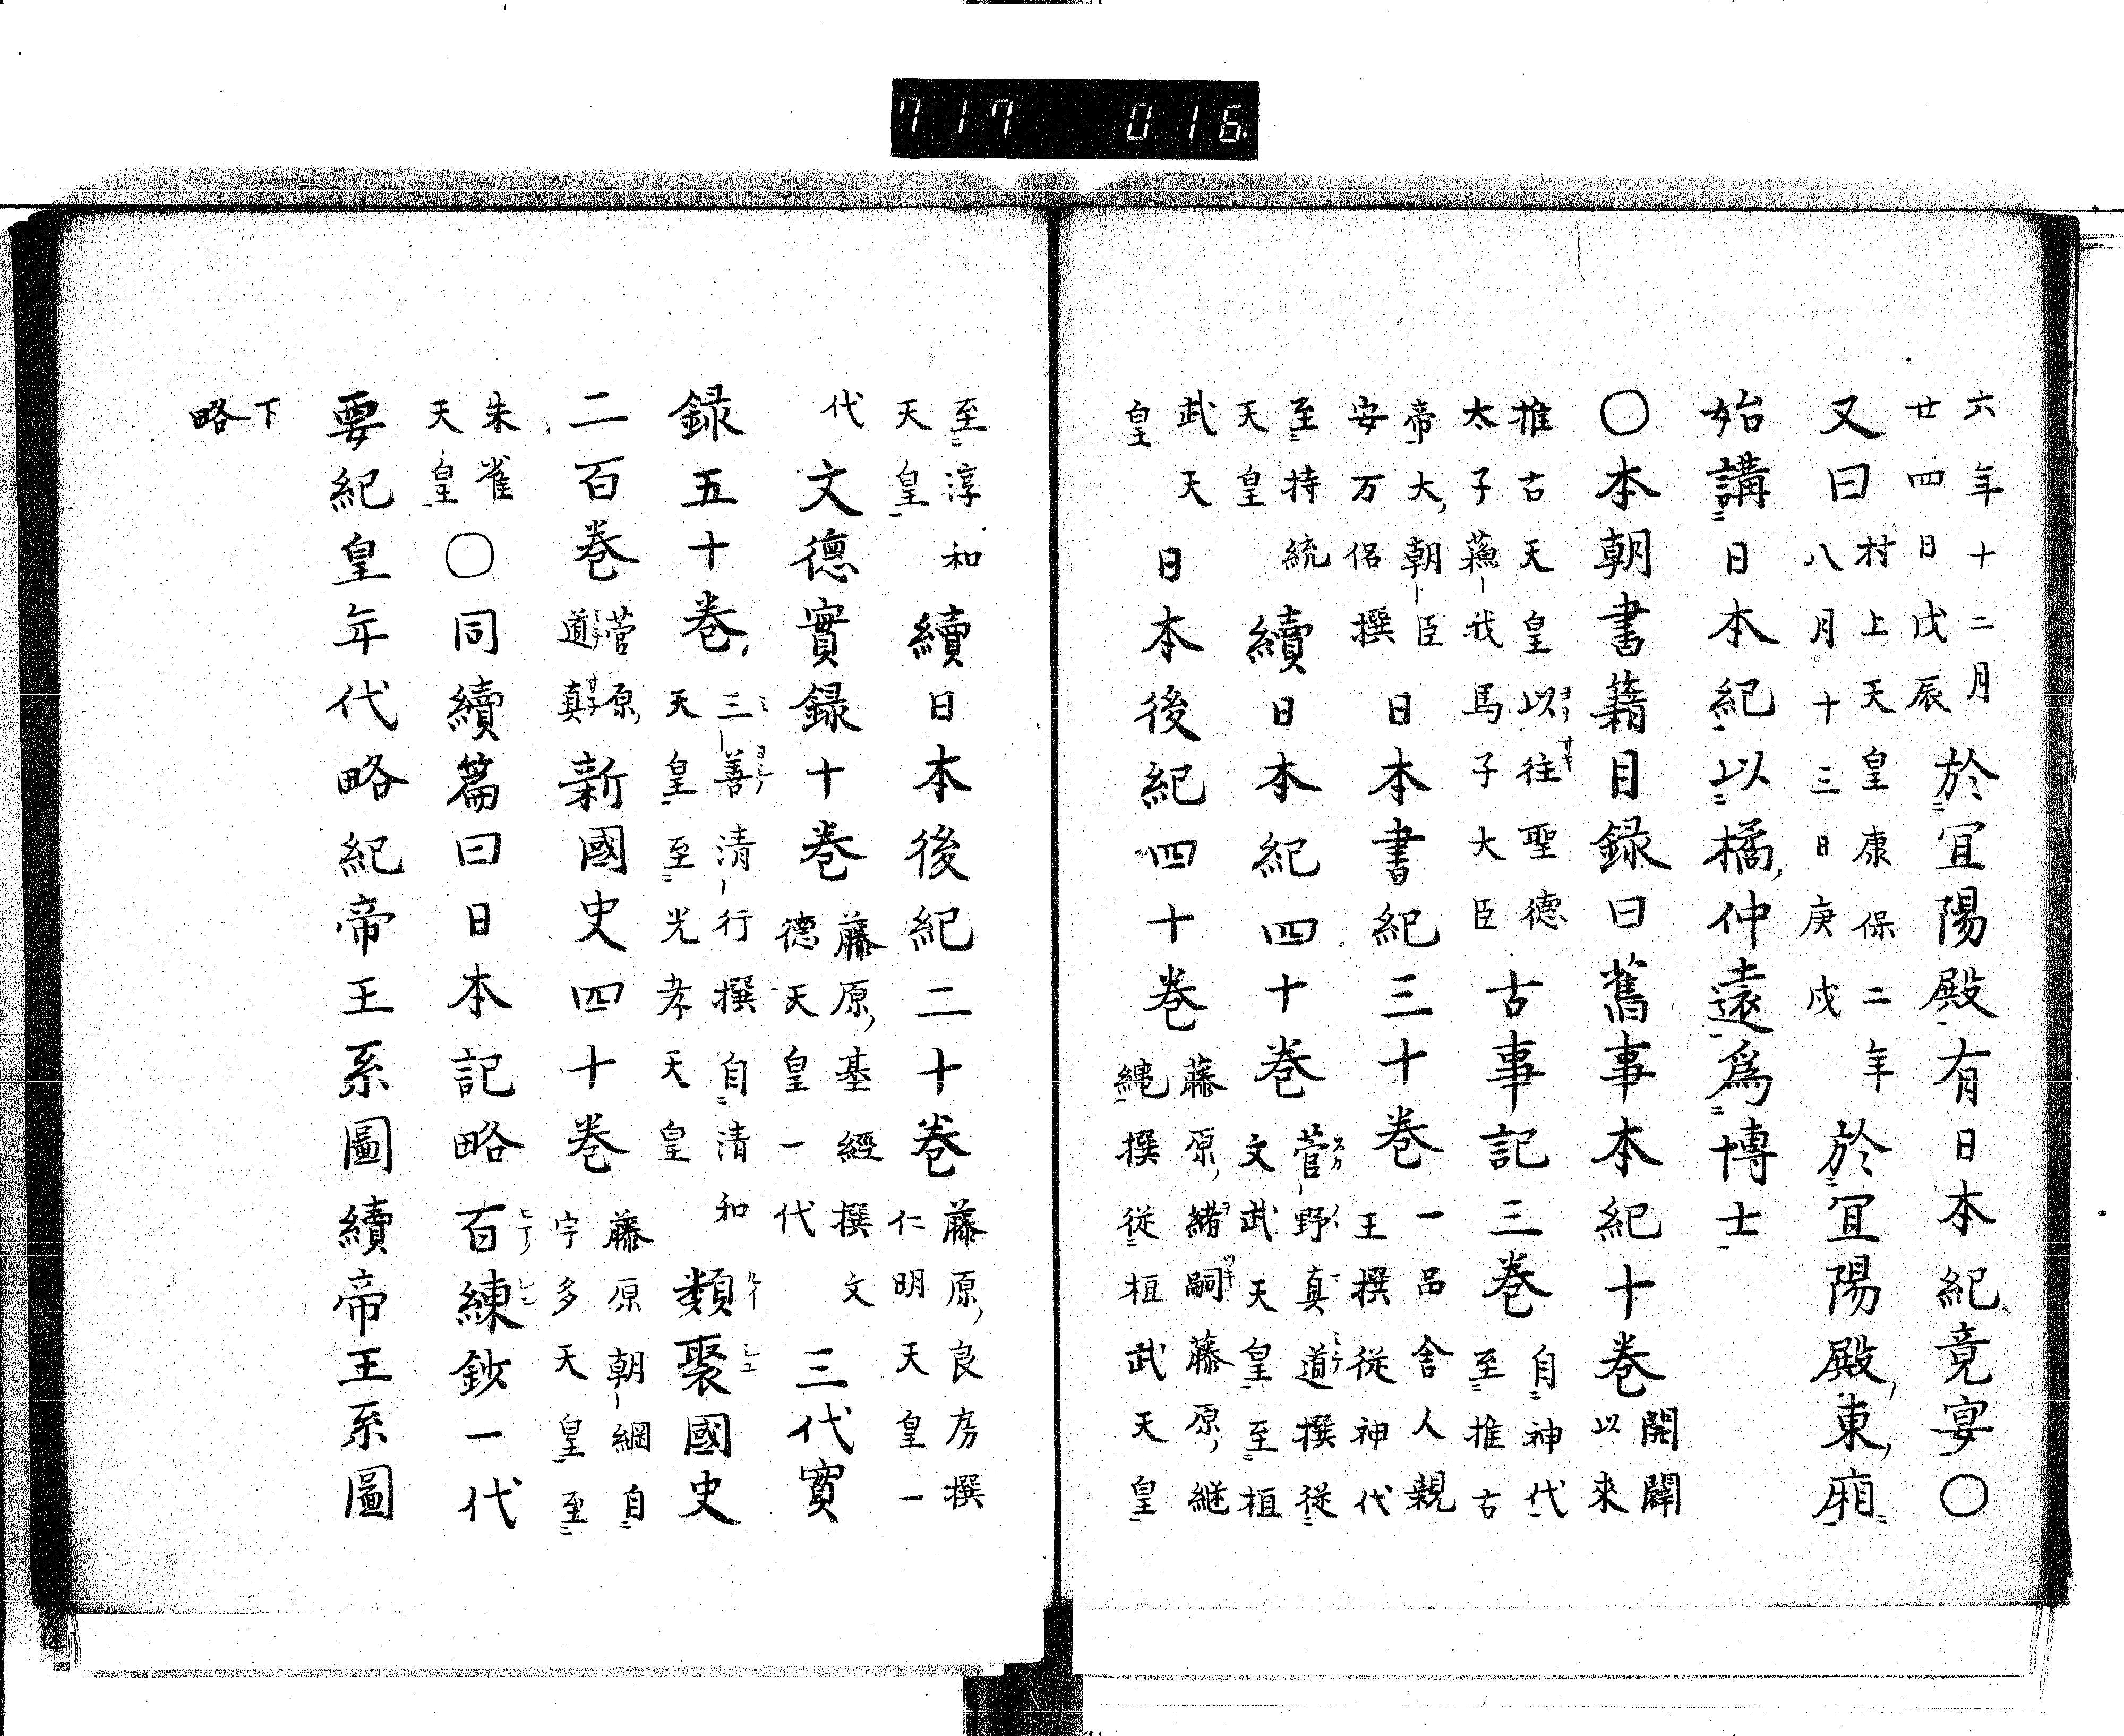 717 016.
六年十二月
廿四日戊辰
於宜陽殿有日本紀竟宴〇
又曰
村上天皇康保二年
八月十三日庚戌
於宜陽殿東廂
始講日本紀以橘仲遠爲博士
〇本朝書籍目録曰舊事本紀十巻
開闢
以來
推古天皇以往聖德
太子蘓我馬子大臣
古事記三巻
自神代
至推古
帝大朝臣
安万侶撰
日本書紀三十巻
一品舎人親
王撰從神代
至持統
天皇
續日本紀四十巻
菅野真道撰從
文武天皇至桓
武天
皇
日本後紀四十巻
藤原緒嗣藤原継
縄撰從桓武天皇
至淳和
天皇
續日本後紀二十巻
藤原良房撰
仁明天皇一
代
文德實録十巻
藤原基經撰文
德天皇一代
三代實
録五十巻
三善清行撰自清和
天皇至光孝天皇
類聚國史
二百巻
菅原
道真
新國史四十巻
藤原朝綱自
宇多天皇至
朱雀
天皇
〇同續篇曰日本記略百練鈔一代
要紀皇年代略紀帝王系圖續帝王系圖
下
略